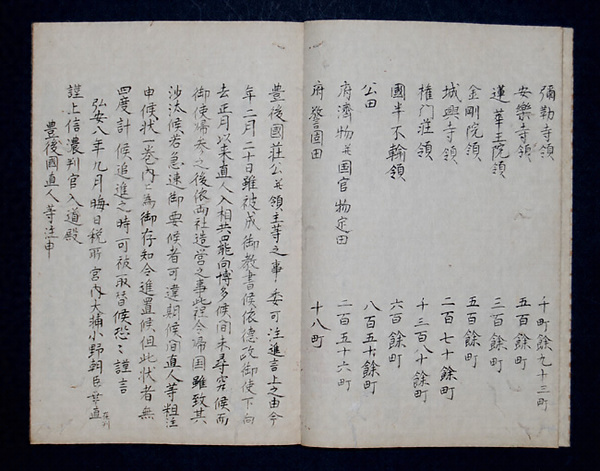 彌勒寺領 千町餘九十三町
安樂寺領 五百餘町
蓮華王院領 三百餘町
金剛院領 五百餘町
城興寺領 二百七十餘町
権门荘領 十三百八十餘町
國半不輸領 六百餘町
公田 八百五十餘町
府濟物并国官物定田 二百五十六町
府 田 十八町
豊後國荘公并領主等之事委可注進言上之由今
年二月二十日雖被成御教書候依徳政御使下向
去正月以来直人入相共罷向博多候间未尋究候而
御使歸参之後依両社造営之事此程令歸国雖致其
沙汰候若急速御要候者可違期候间直人等粗注
申候状一巻内々為御存知令進置候但此状者無
四度計候追進之時可被取替候恐々謹言
弘安八年九月晦日税所宮内大輔小野朝臣 直
謹上信濃判官入道殿
豊後國直人等注申